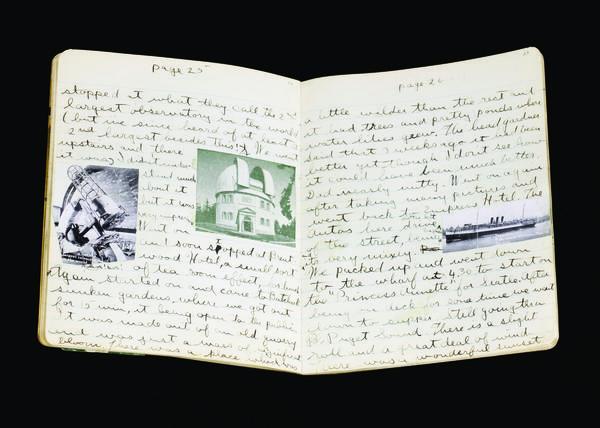 page 25
stopped at what they call the 2nd
largest observatory in the world
(but we since heard of at least
2nd largest besides this!) We went
upstairs and there
it was. I didn't under-
stand much
about it
but it was
very impres
Went
and soon stopped at Brent
wood Hotel, a small sort
of tea room effect, for lunch
Again started on and came to Butchart
sunken gardens, where we got out
for 15 min, it being open to the public.
It was made out of an old quarry
and was just a mass of
bloom. There was a place which was
page 26
a little wilder than the rest and
it had trees and pretty ponds where
water lilies grew. The head gardener
said that 3 weeks ago it had been
better yet though I don't see how
it could have been much better.
Dad nearly nutty. Went on again
after taking many pictures and
went back to Empress Hotel. The
autos here drive
of the street,
to very noisy.
We packed up and went down
to the wharf at 4:30 to start on
the "Princess" for Seattle. After
being on deck for some time we went
down to supper. Still going thru
Puget Sound. There is a slight
roll and a great deal of wind
There was a wonderful sunset